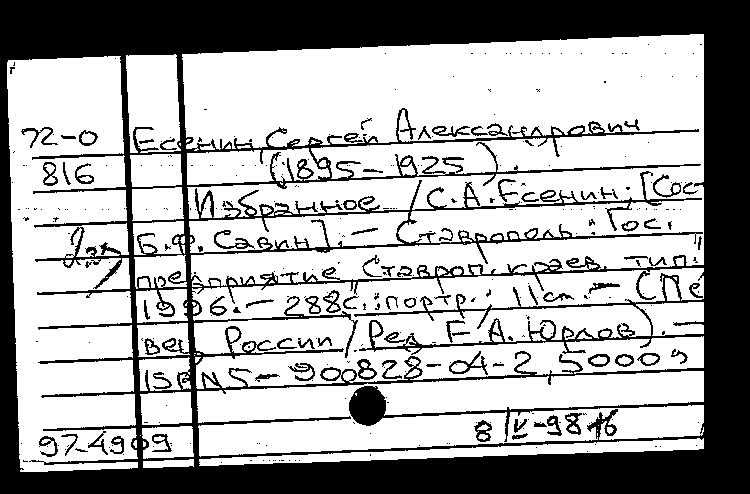 72-0 Есенин, Сергей Александрович
816 (1895-1925).
Избранное / С.А.Есенин; [Сост.
2эк Б.Ф.Савин].— Ставрополь: Гос.
предприятие Ставроп. краев. тип."
1996.— 288с.: портр.; 11см.— (Пе
вец России / Ред. А.Юрлов).—
ISBN 5-900828-04-2, 5000э
97-4909 8/IV-98